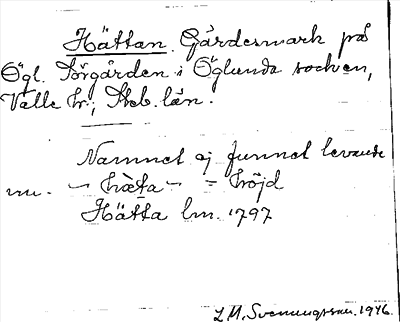 Hättan. Gärdesmark på
Ögl. Storgården i Öglunda socken,
Valle hr., Skb. län.
Namnet ej funnet levande
nu. – hæta – = höjd
Hätta lm. 1797
L M. Svenungsson. 1946.